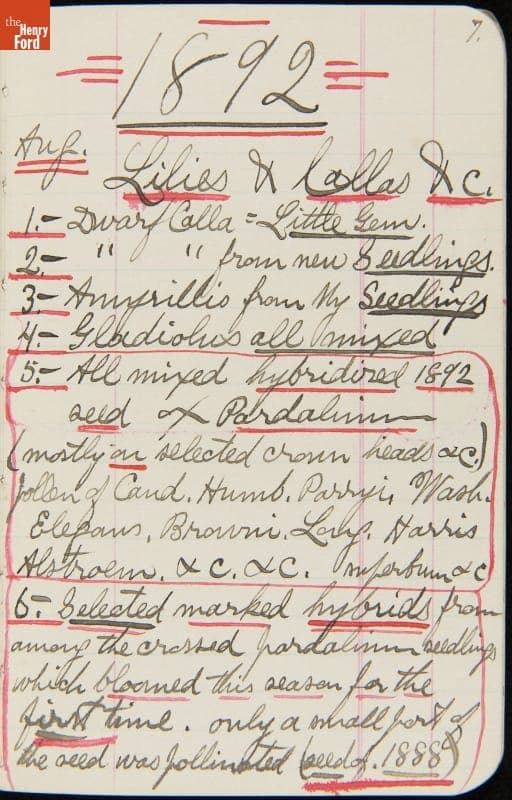 the
Henry
Ford
7.
1892
Aug.
Lilies & Callas &c.
1.- Dwarf Calla = Little Gem.
2.- " " from new Seedlings.
3.- Amyrillis from My Seedlings
4.- Gladiolus all mixed
5.- All mixed hybridized 1892
seed of Pardalinum
(mostly on selected crown heads &c.)
pollen of Cand. Humb. Parryi, Wash.
Elegans, Browni. Long. Harris
Alstroem. &c. &c. superbum &c
6.- Selected marked hybrids from
among the crossed pardalinum seedlings
which bloomed this season for the
first time. only a small part of
the seed was pollinated (seed of 1888)